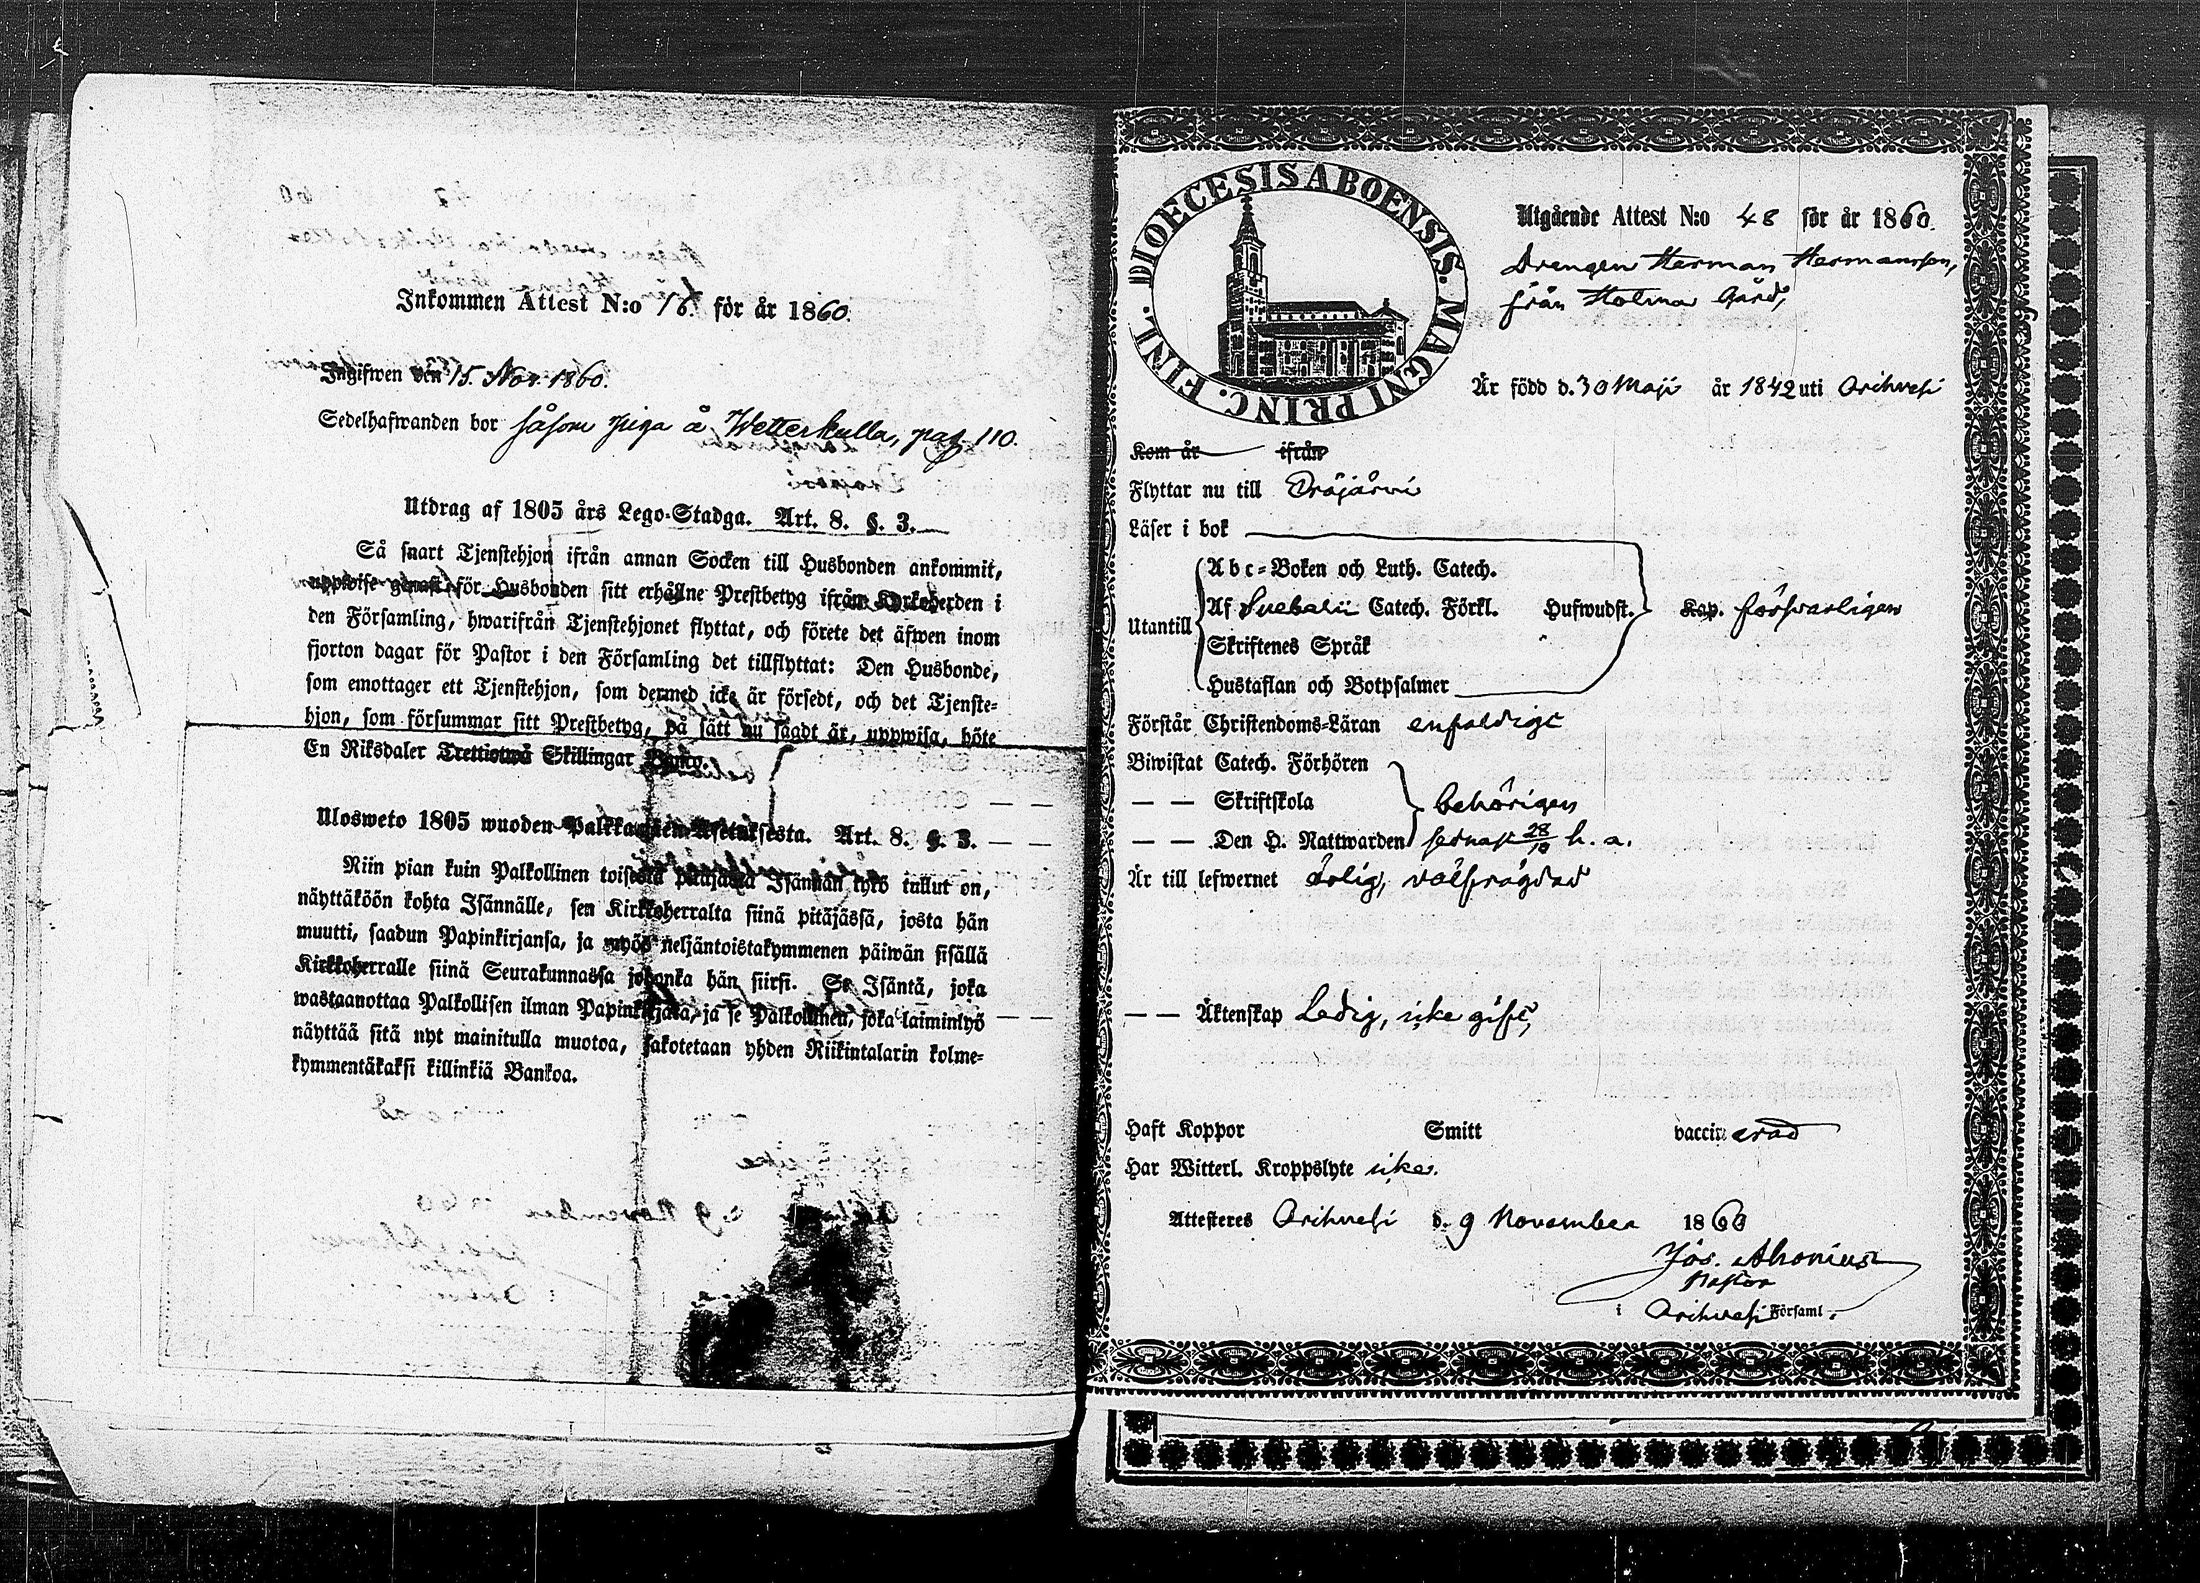 Inkommen Attest N:o 16. för år 1860.
Ingifwen den 15. Nov. 1860.
Sedelhafwanden bor såsom piga å Wetterkulla, pag. 110.
Utdrag af 1805 års Lego-Stadga. Art. 8. §. 3.
Så snart Tjenstehjon ifrån annan Socken till Husbonden ankommit,
uppwise genast för Husbonden sitt erhållne Prestbetyg ifrån Kyrkoherden i
den Församling, hwarifrån Tjenstehjonet flyttat, och förete det äfwen inom
fjorton dagar för Pastor i den Församling det tillflyttat: Den Husbonde,
som emottager ett Tjenstehjon, som dermed icke är försedt, och det Tjenste-
hjon, som försummar sitt Prestbetyg, på sätt nu sagdt är, uppwisa, böte
En Riksdaler Trettiotwå Skillingar Banko.
Ulosweto 1805 wuoden Palkkawäen Asetuksesta. Art. 8. §. 3.
Niin pian kuin Palkollinen toisesta pitäjästä Isännän tykö tullut on,
näyttäköön kohta Isännälle, sen Kirkkoherralta siinä pitäjässä, josta hän
muutti, saadun Papinkirjansa, ja myös neljäntoistakymmenen päiwän sisällä
Kirkkoherralle siinä Seurakunnassa johonka hän siirsi. Se Isäntä, joka
wastaanottaa Palkollisen ilman Papinkirjata, ja se Palkollinen, joka laiminlyö
näyttää sitä nyt mainitulla muotoa, sakotetaan yhden Riikintalarin kolme-
kymmentäkaksi killinkiä Bankoa.
DIOECESIS ABOENSIS. MAGNI PRINC. FINL.
Utgående Attest N:o 48 för år 1860.
Drengen Herman Hermansson,
från Holma Gård,
Är född d. 30 Maji år 1842 uti Orihvesi
Kom år ifrån
Flyttar nu till Pröjärvi
Läser i bok
Abc-Boken och Luth. Catech.
Utantill Af Svebelii Catech. Förkl. Hufwudst. Kap. försvarligen
Skriftenes Språk
Hustaflan och Botpsalmer
Förstår Christendoms-Läran enfaldigt
Biwistat Catech. Förhören
— — Skriftskola behörigen
— — Den H. Nattwarden sednast 28/10 h. a.
Är till lefwernet ärlig, välfrägdad
— — Äktenskap Ledig, icke gift,
Haft Koppor Smitt vaccinerad
Har Witterl. Kroppslyte icke.
Attesteres Orihvesi d. 9 November 1860
Jos. Ahonius
Pastor
i Orihvesi Församl.